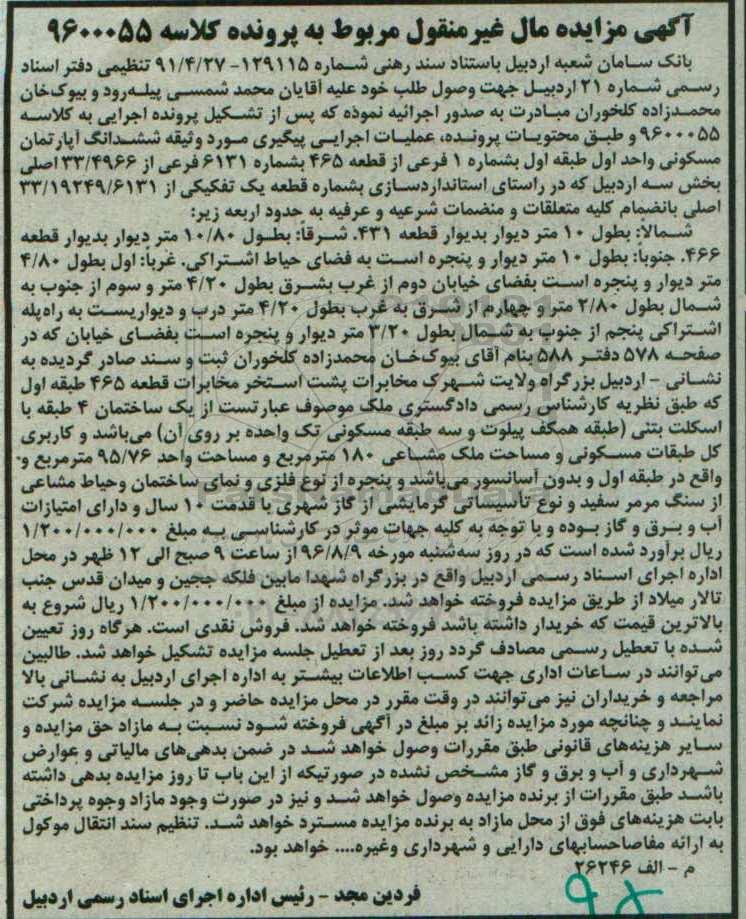 آگهی مزایده مال غیرمنقول مربوط به پرونده کلاسه ۹۶۰۰۰۵۵
بانک سامان شعبه اردبیل باستناد سند رهنی شماره ۱۲۹۱۱۵- ۹۱/۴/۲۷ تنظیمی دفتر اسناد
رسمی شماره ۲۱ اردبیل جهت وصول طلب خود علیه آقایان محمد شمسی پیله‌رود و بیوک‌خان
محمدزاده کلخوران مبادرت به صدور اجرائیه نموده که پس از تشکیل پرونده اجرایی به کلاسه
۹۶۰۰۰۵۵ و طبق محتویات پرونده، عملیات اجرایی پیگیری مورد وثیقه ششدانگ آپارتمان
مسکونی واحد اول طبقه اول بشماره ۱ فرعی از قطعه ۴۶۵ بشماره ۶۱۳۱ فرعی از ۳۳/۴۹۶۶ اصلی
بخش سه اردبیل که در راستای استانداردسازی بشماره قطعه یک تفکیکی از ۳۳/۱۹۲۴۹/۶۱۳۱
اصلی بانضمام کلیه متعلقات و منضمات شرعیه و عرفیه به حدود اربعه زیر:
شمالا: بطول ۱۰ متر دیوار بدیوار قطعه ۴۳۱. شرقاً: بطول ۱۰/۸۰ متر دیوار بدیوار قطعه
۴۶۶. جنوباً: بطول ۱۰ متر دیوار و پنجره است به فضای حیاط اشتراکی. غرباً: اول بطول ۴/۸۰
متر دیوار و پنجره است بفضای خیابان دوم از غرب بشرق بطول ۴/۲۰ متر و سوم از جنوب به
شمال بطول ۲/۸۰ متر و چهارم از شرق به غرب بطول ۴/۲۰ متر درب و دیواریست به راه‌پله
اشتراکی پنجم از جنوب به شمال بطول ۳/۲۰ متر دیوار و پنجره است بفضای خیابان که در
صفحه ۵۷۸ دفتر ۵۸۸ بنام آقای بیوک‌خان محمدزاده کلخوران ثبت و سند صادر گردیده به
نشانی - اردبیل بزرگراه ولایت شهرک مخابرات پشت استخر مخابرات قطعه ۴۶۵ طبقه اول
که طبق نظریه کارشناس رسمی دادگستری ملک موصوف عبارتست از یک ساختمان ۴ طبقه با
اسکلت بتنی (طبقه همکف پیلوت و سه طبقه مسکونی تک واحده بر روی آن) می‌باشد و کاربری
کل طبقات مسکونی و مساحت ملک مشاعی ۱۸۰ مترمربع و مساحت واحد ۹۵/۷۶ مترمربع و
واقع در طبقه اول و بدون آسانسور می‌باشد و پنجره از نوع فلزی و نمای ساختمان وحیاط مشاعی
از سنگ مرمر سفید و نوع تأسیساتی گرمایشی از گاز شهری با قدمت ۱۰ سال و دارای امتیازات
آب و برق و گاز بوده و با توجه به کلیه جهات موثر در کارشناسی به مبلغ ۱/۲۰۰/۰۰۰/۰۰۰
ریال برآورد شده است که در روز سه‌شنبه مورخه ۹۶/۸/۹ از ساعت ۹ صبح الی ۱۲ ظهر در محل
اداره اجرای اسناد رسمی اردبیل واقع در بزرگراه شهدا مابین فلکه ججین و میدان قدس جنب
تالار میلاد از طریق مزایده فروخته خواهد شد. مزایده از مبلغ ۱/۲۰۰/۰۰۰/۰۰۰ ریال شروع به
بالاترین قیمت که خریدار داشته باشد فروخته خواهد شد. فروش نقدی است. هرگاه روز تعیین
شده با تعطیل رسمی مصادف گردد روز بعد از تعطیل جلسه مزایده تشکیل خواهد شد. طالبین
می‌توانند در ساعات اداری جهت کسب اطلاعات بیشتر به اداره اجرای اردبیل به نشانی بالا
مراجعه و خریداران نیز می‌توانند در وقت مقرر در محل مزایده حاضر و در جلسه مزایده شرکت
نمایند و چنانچه مورد مزایده زائد بر مبلغ در آگهی فروخته شود نسبت به مازاد حق مزایده و
سایر هزینه‌های قانونی طبق مقررات وصول خواهد شد در ضمن بدهی‌های مالیاتی و عوارض
شهرداری و آب و برق و گاز مشخص نشده در صورتیکه از این باب تا روز مزایده بدهی داشته
باشد طبق مقررات از برنده مزایده وصول خواهد شد و نیز در صورت وجود مازاد وجوه پرداختی
بابت هزینه‌های فوق از محل مازاد به برنده مزایده مسترد خواهد شد. تنظیم سند انتقال موکول
به ارائه مفاصاحسابهای دارایی و شهرداری وغیره.... خواهد بود.
م - الف ۲۶۲۴۶
فردین مجد - رئیس اداره اجرای اسناد رسمی اردبیل